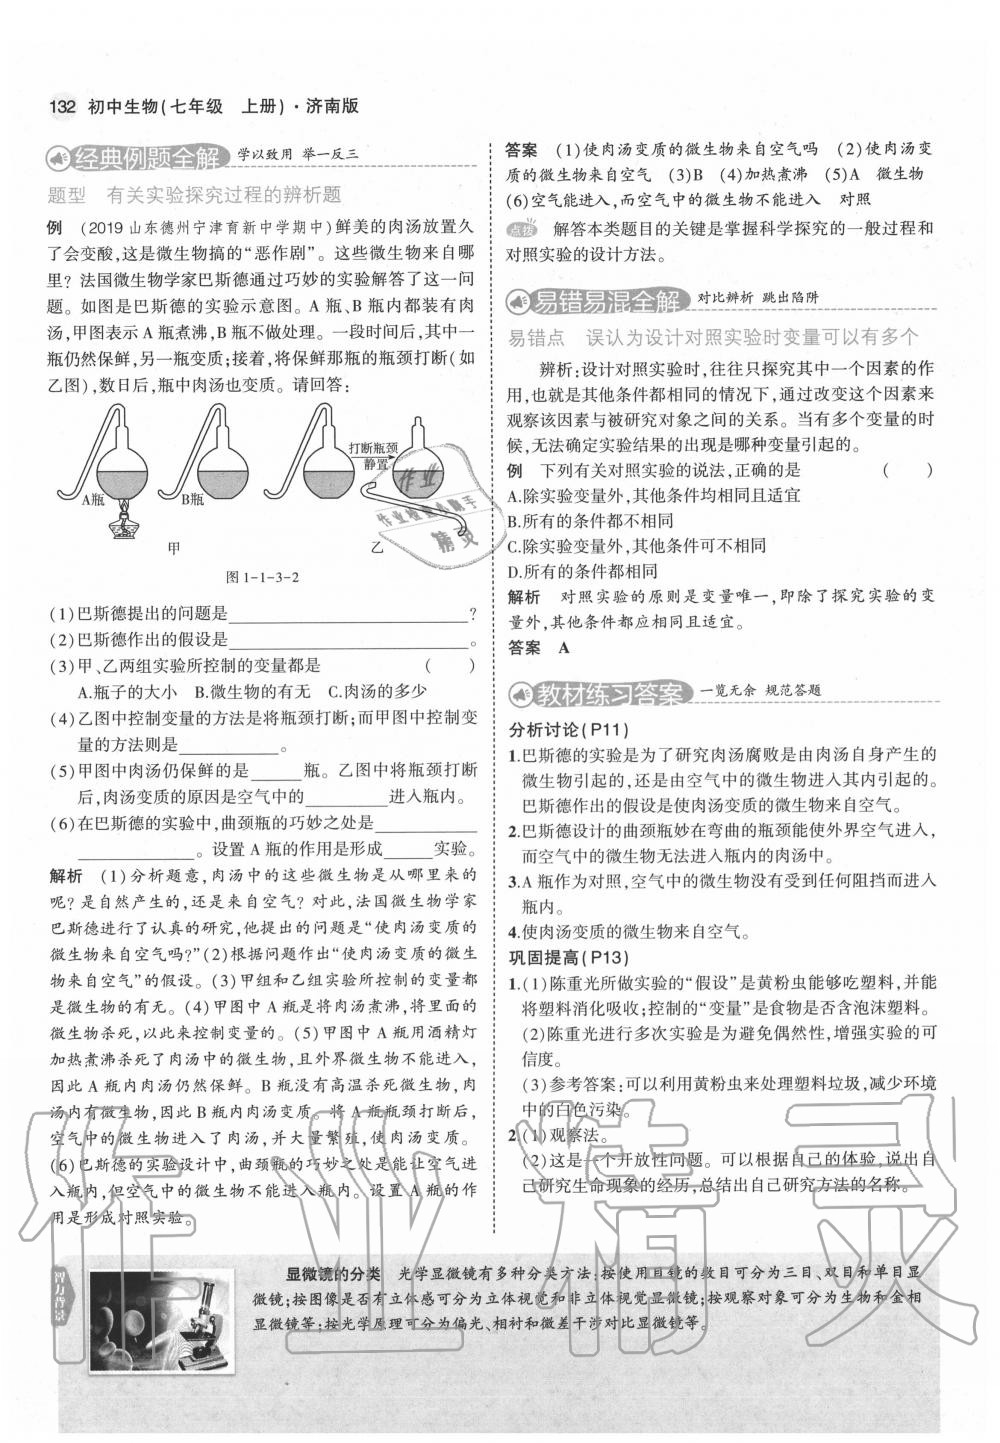 132 初中生物(七年级　上册)·济南版
经典例题全解 学以致用 举一反三
题型　有关实验探究过程的辨析题
例　(2019山东德州宁津育新中学期中)鲜美的肉汤放置久
了会变酸,这是微生物搞的“恶作剧”。这些微生物来自哪
里? 法国微生物学家巴斯德通过巧妙的实验解答了这一问
题。如图是巴斯德的实验示意图。A 瓶、B 瓶内都装有肉
汤,甲图表示 A 瓶煮沸,B 瓶不做处理。一段时间后,其中一
瓶仍然保鲜,另一瓶变质;接着,将保鲜那瓶的瓶颈打断(如
乙图),数日后,瓶中肉汤也变质。请回答:
打断瓶颈
静置
A瓶
B瓶
甲
乙
图1-1-3-2
(1)巴斯德提出的问题是________________________?
(2)巴斯德作出的假设是________________________。
(3)甲、乙两组实验所控制的变量都是　(　　)
A.瓶子的大小　B.微生物的有无　C.肉汤的多少
(4)乙图中控制变量的方法是将瓶颈打断;而甲图中控制变
量的方法则是__________。
(5)甲图中肉汤仍保鲜的是_____瓶。乙图中将瓶颈打断
后,肉汤变质的原因是空气中的________进入瓶内。
(6)在巴斯德的实验中,曲颈瓶的巧妙之处是__________
____________。设置 A 瓶的作用是形成_____实验。
解析　(1)分析题意,肉汤中的这些微生物是从哪里来的
呢? 是自然产生的,还是来自空气? 对此,法国微生物学家
巴斯德进行了认真的研究,他提出的问题是“使肉汤变质的
微生物来自空气吗?”(2)根据问题作出“使肉汤变质的微生
物来自空气”的假设。(3)甲组和乙组实验所控制的变量都
是微生物的有无。(4)甲图中 A 瓶是将肉汤煮沸,将里面的
微生物杀死,以此来控制变量的。(5)甲图中 A 瓶用酒精灯
加热煮沸杀死了肉汤中的微生物,且外界微生物不能进入,
因此 A 瓶内肉汤仍然保鲜。B 瓶没有高温杀死微生物,肉
汤内有微生物,因此 B 瓶内肉汤变质。将 A 瓶瓶颈打断后,
空气中的微生物进入了肉汤,并大量繁殖,使肉汤变质。
(6)巴斯德的实验设计中,曲颈瓶的巧妙之处是能让空气进
入瓶内,但空气中的微生物不能进入瓶内。设置 A 瓶的作
用是形成对照实验。
答案　(1)使肉汤变质的微生物来自空气吗　(2)使肉汤变
质的微生物来自空气　(3)B　(4)加热煮沸　(5)A　微生物
(6)空气能进入,而空气中的微生物不能进入　对照
点拨　解答本类题目的关键是掌握科学探究的一般过程和
对照实验的设计方法。
易错易混全解 对比辨析 跳出陷阱
易错点　误认为设计对照实验时变量可以有多个
辨析:设计对照实验时,往往只探究其中一个因素的作
用,也就是其他条件都相同的情况下,通过改变这个因素来
观察该因素与被研究对象之间的关系。当有多个变量的时
候,无法确定实验结果的出现是哪种变量引起的。
例　下列有关对照实验的说法,正确的是　(　　)
A.除实验变量外,其他条件均相同且适宜
B.所有的条件都不相同
C.除实验变量外,其他条件可不相同
D.所有的条件都相同
解析　对照实验的原则是变量唯一,即除了探究实验的变
量外,其他条件都应相同且适宜。
答案　A
教材练习答案 一览无余 规范答题
分析讨论(P11)
1.巴斯德的实验是为了研究肉汤腐败是由肉汤自身产生的
微生物引起的,还是由空气中的微生物进入其内引起的。
巴斯德作出的假设是使肉汤变质的微生物来自空气。
2.巴斯德设计的曲颈瓶妙在弯曲的瓶颈能使外界空气进入,
而空气中的微生物无法进入瓶内的肉汤中。
3.A 瓶作为对照,空气中的微生物没有受到任何阻挡而进入
瓶内。
4.使肉汤变质的微生物来自空气。
巩固提高(P13)
1.(1)陈重光所做实验的“假设”是黄粉虫能够吃塑料,并能
将塑料消化吸收;控制的“变量”是食物是否含泡沫塑料。
(2)陈重光进行多次实验是为避免偶然性,增强实验的可
信度。
(3)参考答案:可以利用黄粉虫来处理塑料垃圾,减少环境
中的白色污染。
2.(1)观察法。
(2)这是一个开放性问题。可以根据自己的体验,说出自
己研究生命现象的经历,总结出自己研究方法的名称。
智力背景
显微镜的分类　光学显微镜有多种分类方法:按使用目镜的数目可分为三目、双目和单目显
微镜;按图像是否有立体感可分为立体视觉和非立体视觉显微镜;按观察对象可分为生物和金相
显微镜等;按光学原理可分为偏光、相衬和微差干涉对比显微镜等。
作业精灵